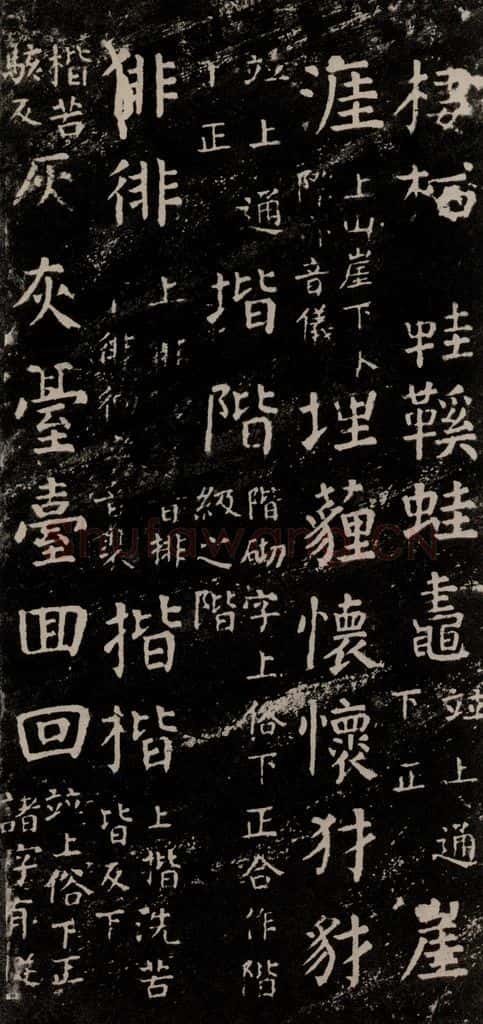 棲栖鞋鞵蛙鼃竝上通下正崖
涯上山崖下水際亦音儀埋薶懷懷犲豺
竝上通下正堦階階砌字上俗下正合作階級之階
徘上下徘揩楷上揩洗苦皆反下
楷苦駭反灰灰臺臺囬回竝上俗下正諸字有從
shufawang.CN